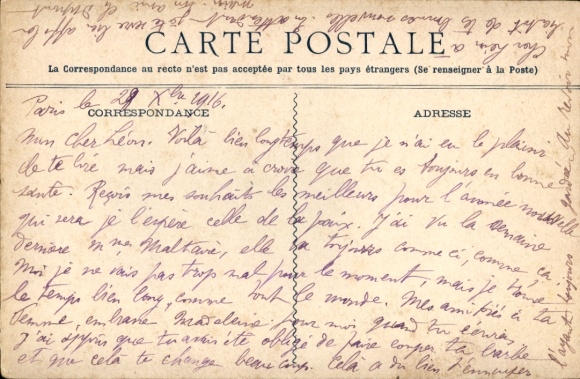 CARTE POSTALE
La Correspondance au recto n'est pas acceptée par tous les pays étrangers (Se renseigner à la Poste)
CORRESPONDANCE
ADRESSE
Paris le 29 Xbre 1916.
Mon cher Léon. Voilà bien longtemps que je n'ai eu le plaisir
de te lire mais j'aime à croire que tu es toujours en bonne
santé. Reçois mes souhaits les meilleurs pour l'année nouvelle
qui sera je l'espère celle de la paix. J'ai vu la semaine
dernière Mme, elle va toujours comme ci, comme ça.
Moi je ne vais pas trop mal pour le moment, mais je trouve
le temps bien long, comme tout le monde. Mes amitiés à ta
femme, embrasse Madeleine pour moi quand tu écriras
J'ai appris que tu avais été obligé de faire couper ta barbe
et que cela te change beaucoup. Cela a dû bien t'ennuyer
l'ayant toujours gardée. Au revoir mon
cher Léon
de tes bonnes nouvelles